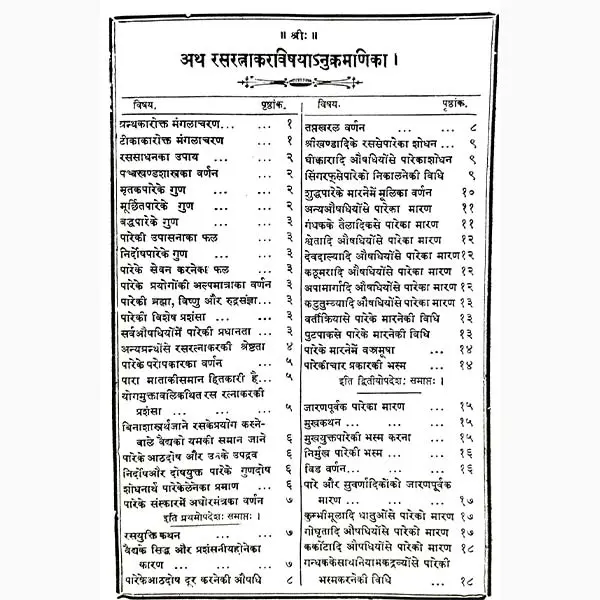 ॥ श्रीः ॥
अथ रसरत्नाकरविषयाऽनुक्रमणिका ।
विषय. पृष्ठांक.
ग्रन्थकारोक्त मंगलाचरण... ... १
टीकाकारोक्त मंगलाचरण ... १
रससाधनका उपाय ... ... २
पञ्चखण्डशास्त्रका वर्णन ... २
मृतकपारेके गुण ... ... २
मूर्छितपारेके गुण ... ... २
बद्धपारेके गुण ... ... ३
पारेकी उपासनाका फल ... ३
निर्दोषपारेके गुण ... ... ३
पारेके सेवन करनेका फल ... ३
पारेके प्रयोगोंकी अल्पमात्राका वर्णन ३
पारेकी ब्रह्मा, विष्णु और रुद्रसंज्ञा... ३
पारेकी विशेष प्रशंसा ... ... ३
सर्वऔषधियोंमें पारेकी प्रधानता ... ३
अन्यग्रन्थोंसे रसरत्नाकरकी श्रेष्ठता ४
पारेके परोपकारका वर्णन ... ५
पारा माताकीसमान हितकारी है... ५
योगमुक्तावलिकथित रस रत्नाकरकी
प्रशंसा ... ... ... ५
बिनाशास्त्रर्थजाने रसकेप्रयोग करने-
वाले वैद्यको यमकी समान जाने ६
पारेके आठदोष और उनके उपद्रव ६
निर्दोषऔर दोषयुक्त पारेके गुणदोष ६
शोधनार्थ पारेकेलेनेका प्रमाण ... ६
पारेके संस्कारमें अघोरमंत्रका वर्णन ७
इति प्रथमोपदेशः समाप्तः ।
रसयुक्ति कथन ... ... ७
वैद्यके सिद्ध और प्रशंसनीयहोनेका
कारण ... ... ... ७
पारेकेआठदोष दूर करनेकी औषधि ८
विषय. पृष्ठांक.
तप्तखरल वर्णन ... ... ८
श्रीखण्डादिके रससेपारेका शोधन ... ९
घीक्वारादि औषधियोंसे पारेकाशोधन ९
सिंगरफ्सेपारेको निकालनेकी विधि ९
शुद्धपारेके मारनेमें मूलिका वर्णन १०
अन्यऔषधियोंसे पारेका मारण ११
गंधकके तैलादिकसे पारेका मारण ११
श्वेतादि औषधियोंसे पारेका मारण १२
देवदाल्यादि औषधियोंसे पारेका मारण १२
कठूमरादि औषधियोंसे पारेका मारण १२
अपामार्गादि औषधियोंसे पारेका मारण १२
कटुतुम्ब्यादि औषधियोंसे पारेका मारण १३
वर्तीक्रियासे पारेके मारनेकी विधि १३
पुटपाकसे पारेके मारनेकी विधि १३
पारेके मारनेमें वज्रमूषा ... १४
पारेकीचार प्रकारकी भस्म ... १४
इति द्वितीयोपदेशः समाप्तः ।
जारणपूर्वक पारेका मारण ... १५
मुखकथन ... ... ... १५
मुखयुक्तपारेकी भस्म करना ... १५
निर्मुख पारेकी भस्म ... ... १६
विड वर्णन... ... ... १६
पारे और सुवर्णादिकोंको जारणपूर्वक
मारण ... ... ... १७
कुम्भीमूलादि धातुओंसे पारेको मारण १७
गोघृतादि औषधियोंसे पारेका मारण १७
कर्कोटादि औषधियोंसे पारेका मारण १८
गन्धककेसाथनियामकद्रव्योंसे पारेकी
भस्मकरनेकी विधि ... १८